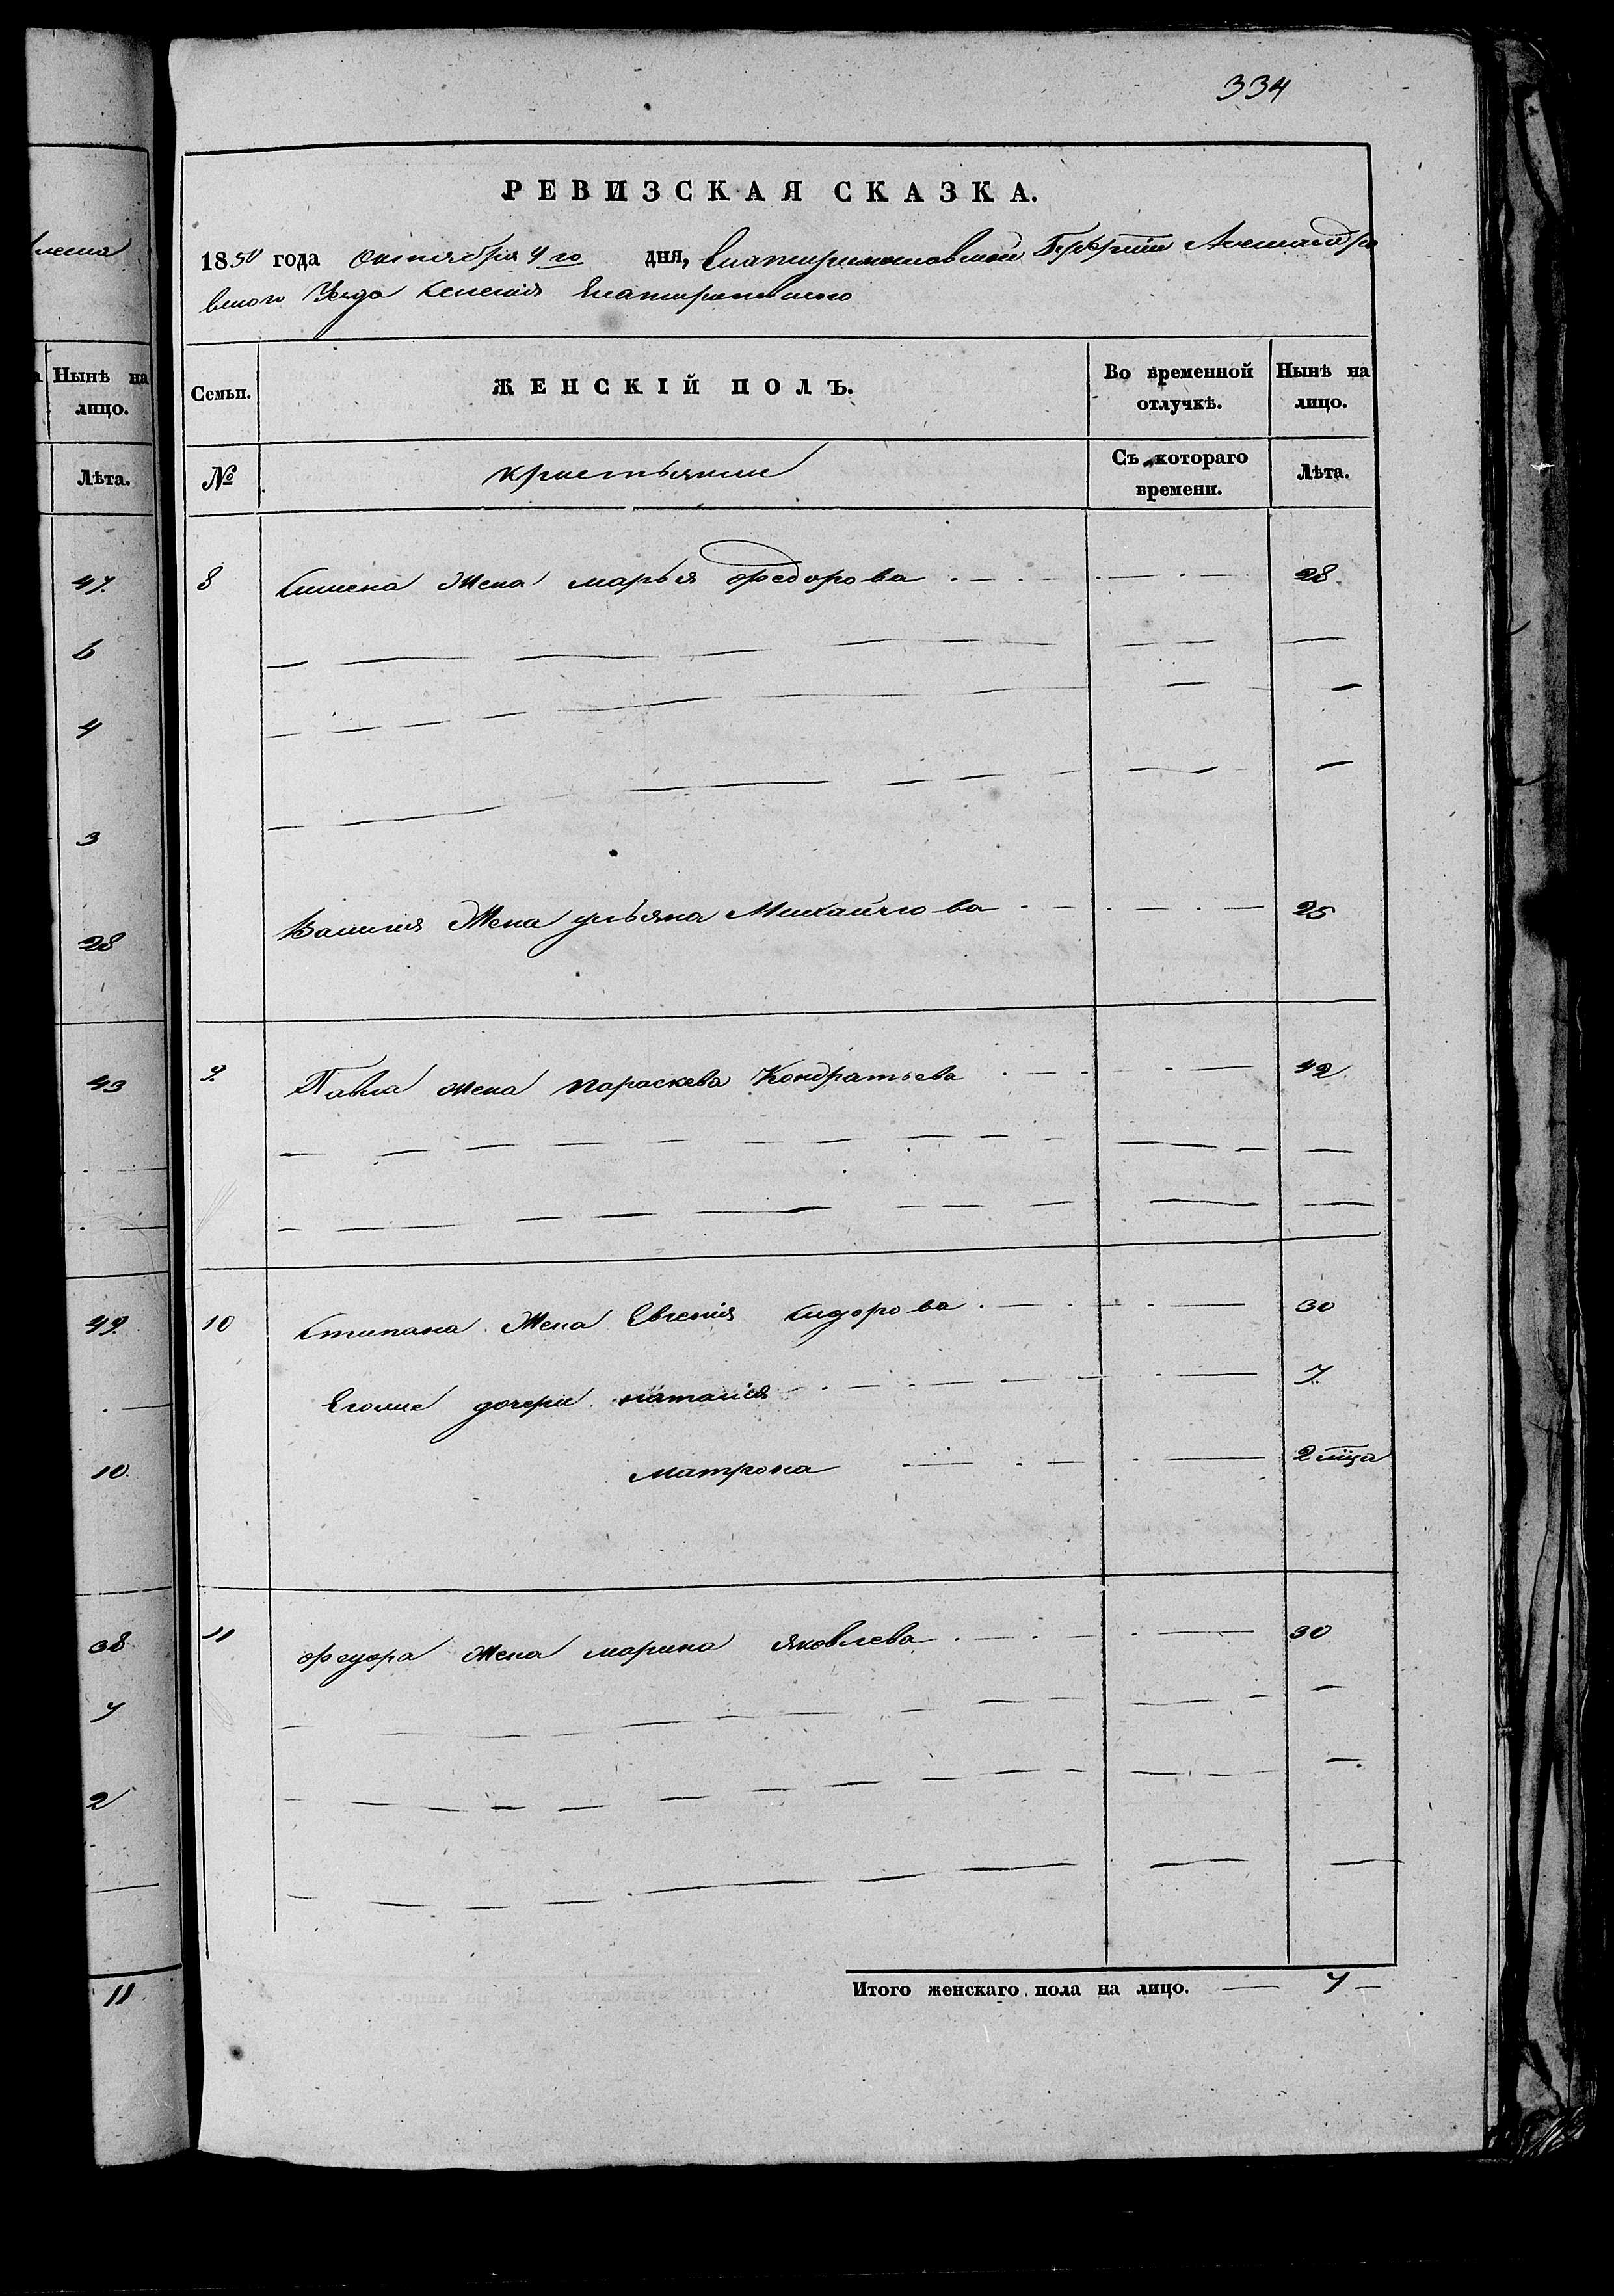 334
РЕВИЗСКАЯ СКАЗКА.
1850 года октября 4го дня, Екатеринославской Губернiи Александро
вского Уезда селения Екатериновского
Семьи.
ЖЕНСКІЙ ПОЛЪ.
Во временной отлучкѣ.
Нынѣ на лицо.
№
крестьяние
Съ котораго времени.
Лѣта.
8 Симена Жена марья федорова 28.
Василия Жена ульяна Михайлова 25
9. Павла жена параскева Кондратьева 42.
10 Стипана Жена Евгения сидорова 30
Его дочери наталия 7.
матрона 2 мца
11 федора жена марина яковлева 30
Итого женскаго пола на лицо. 7
Нынѣ на
лицо.
Лѣта.
47.
6
4
3
28
43
49.
10.
38
7
2
11